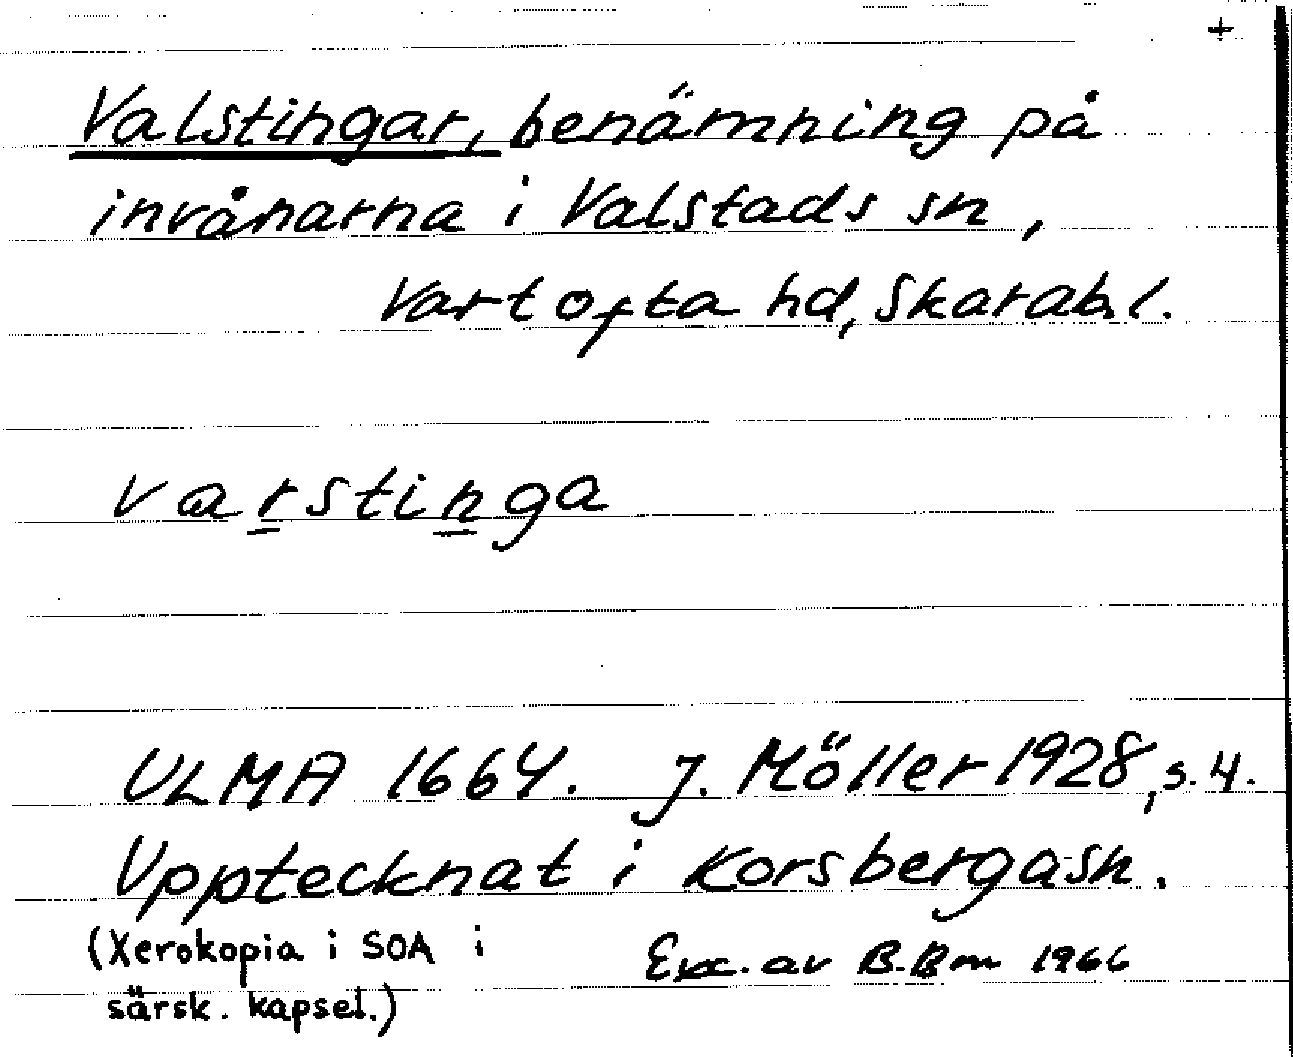 +
Valstingar, benämning på
invånarna i Valstads sn,
Vartofta hd, Skarab. l.
varstinga
ULMA 1664. J. Möller 1928, s. 4.
Upptecknat i Korsberga sn.
(Xerokopia i SOA i
särsk. kapsel.)
Exc. av B. Bm 1966